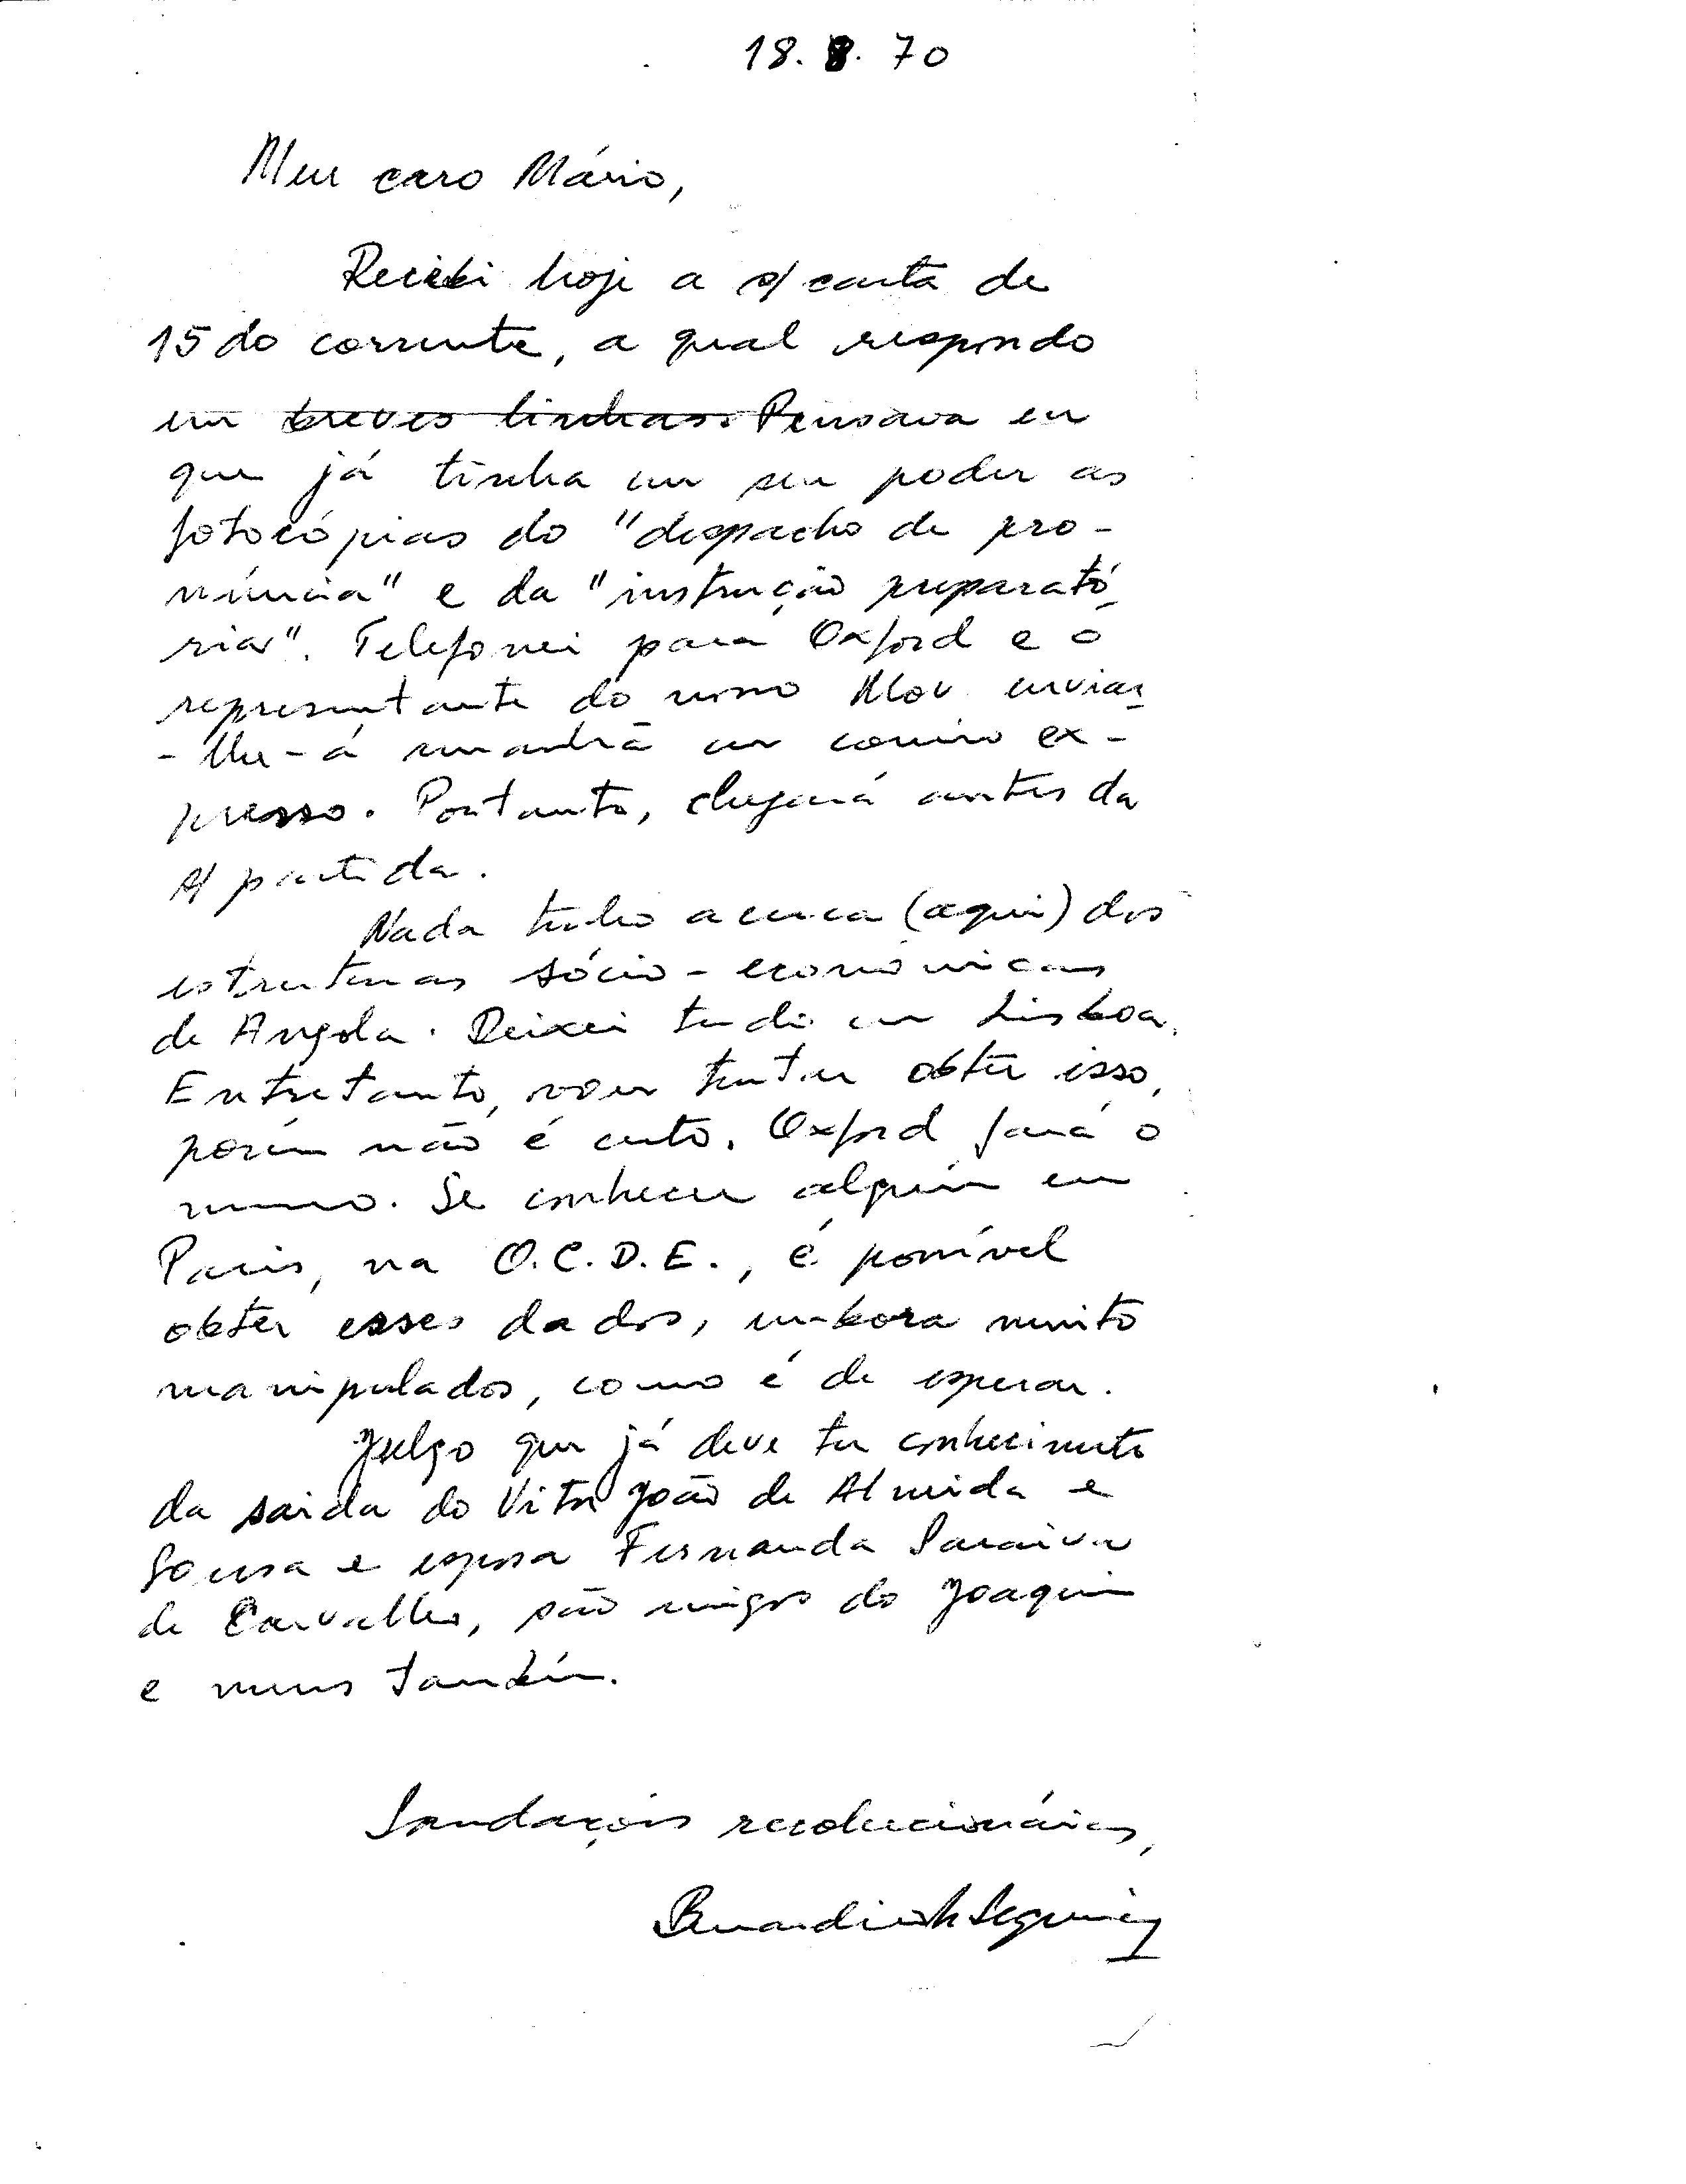 18. 8. 70
Meu caro Mário,
Recebi hoje a s/ carta de
15 do corrente, a qual respondo
em breves linhas. Pensava eu
que já tinha em seu poder as
fotocópias do "despacho de pro-
núncia" e da "instrução preparató-
ria". Telefonei para Oxford e o
representante do nosso Mov. enviar-
-lhe-á amanhã em correio ex-
presso. Portanto, chegará antes da
s/ partida.
Nada tenho acerca (aqui) das
estruturas sócio-económicas
de Angola. Deixei tudo em Lisboa.
Entretanto, vou tentar obter isso,
porém não é certo. Oxford fará o
mesmo. Se conhecer alguém em
Paris, na O.C.D.E., é possível
obter esses dados, embora muito
manipulados, como é de esperar.
Julgo que já deve ter conhecimento
da saida do Vitor João de Almeida e
Sousa e esposa Fernanda Saraiva
de Carvalho, são amigos do Joaquim
e meus também.
Saudações revolucionárias,